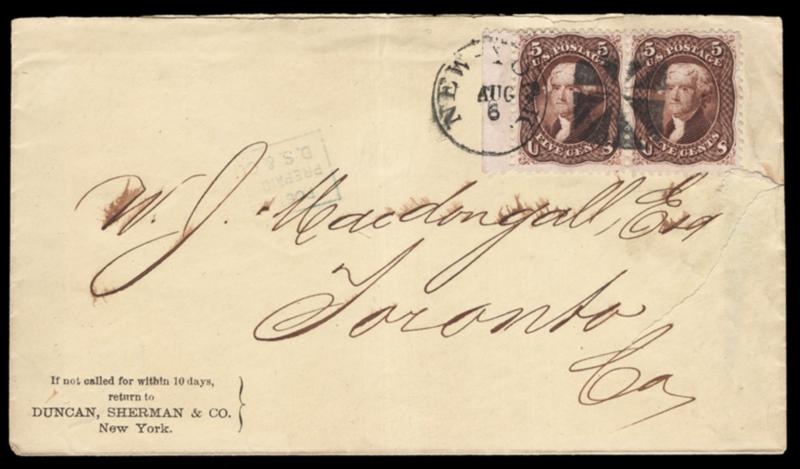 5 5
U.S. POSTAGE
U S
FIVE CENTS
5 5
U.S. POSTAGE
U S
FIVE CENTS
NEW YORK
AUG
6
PREPAID
D.S. & CO
W. J. Macdongall, Esq
Toronto
Ca
If not called for within 10 days,
return to
DUNCAN, SHERMAN & CO.
New York.